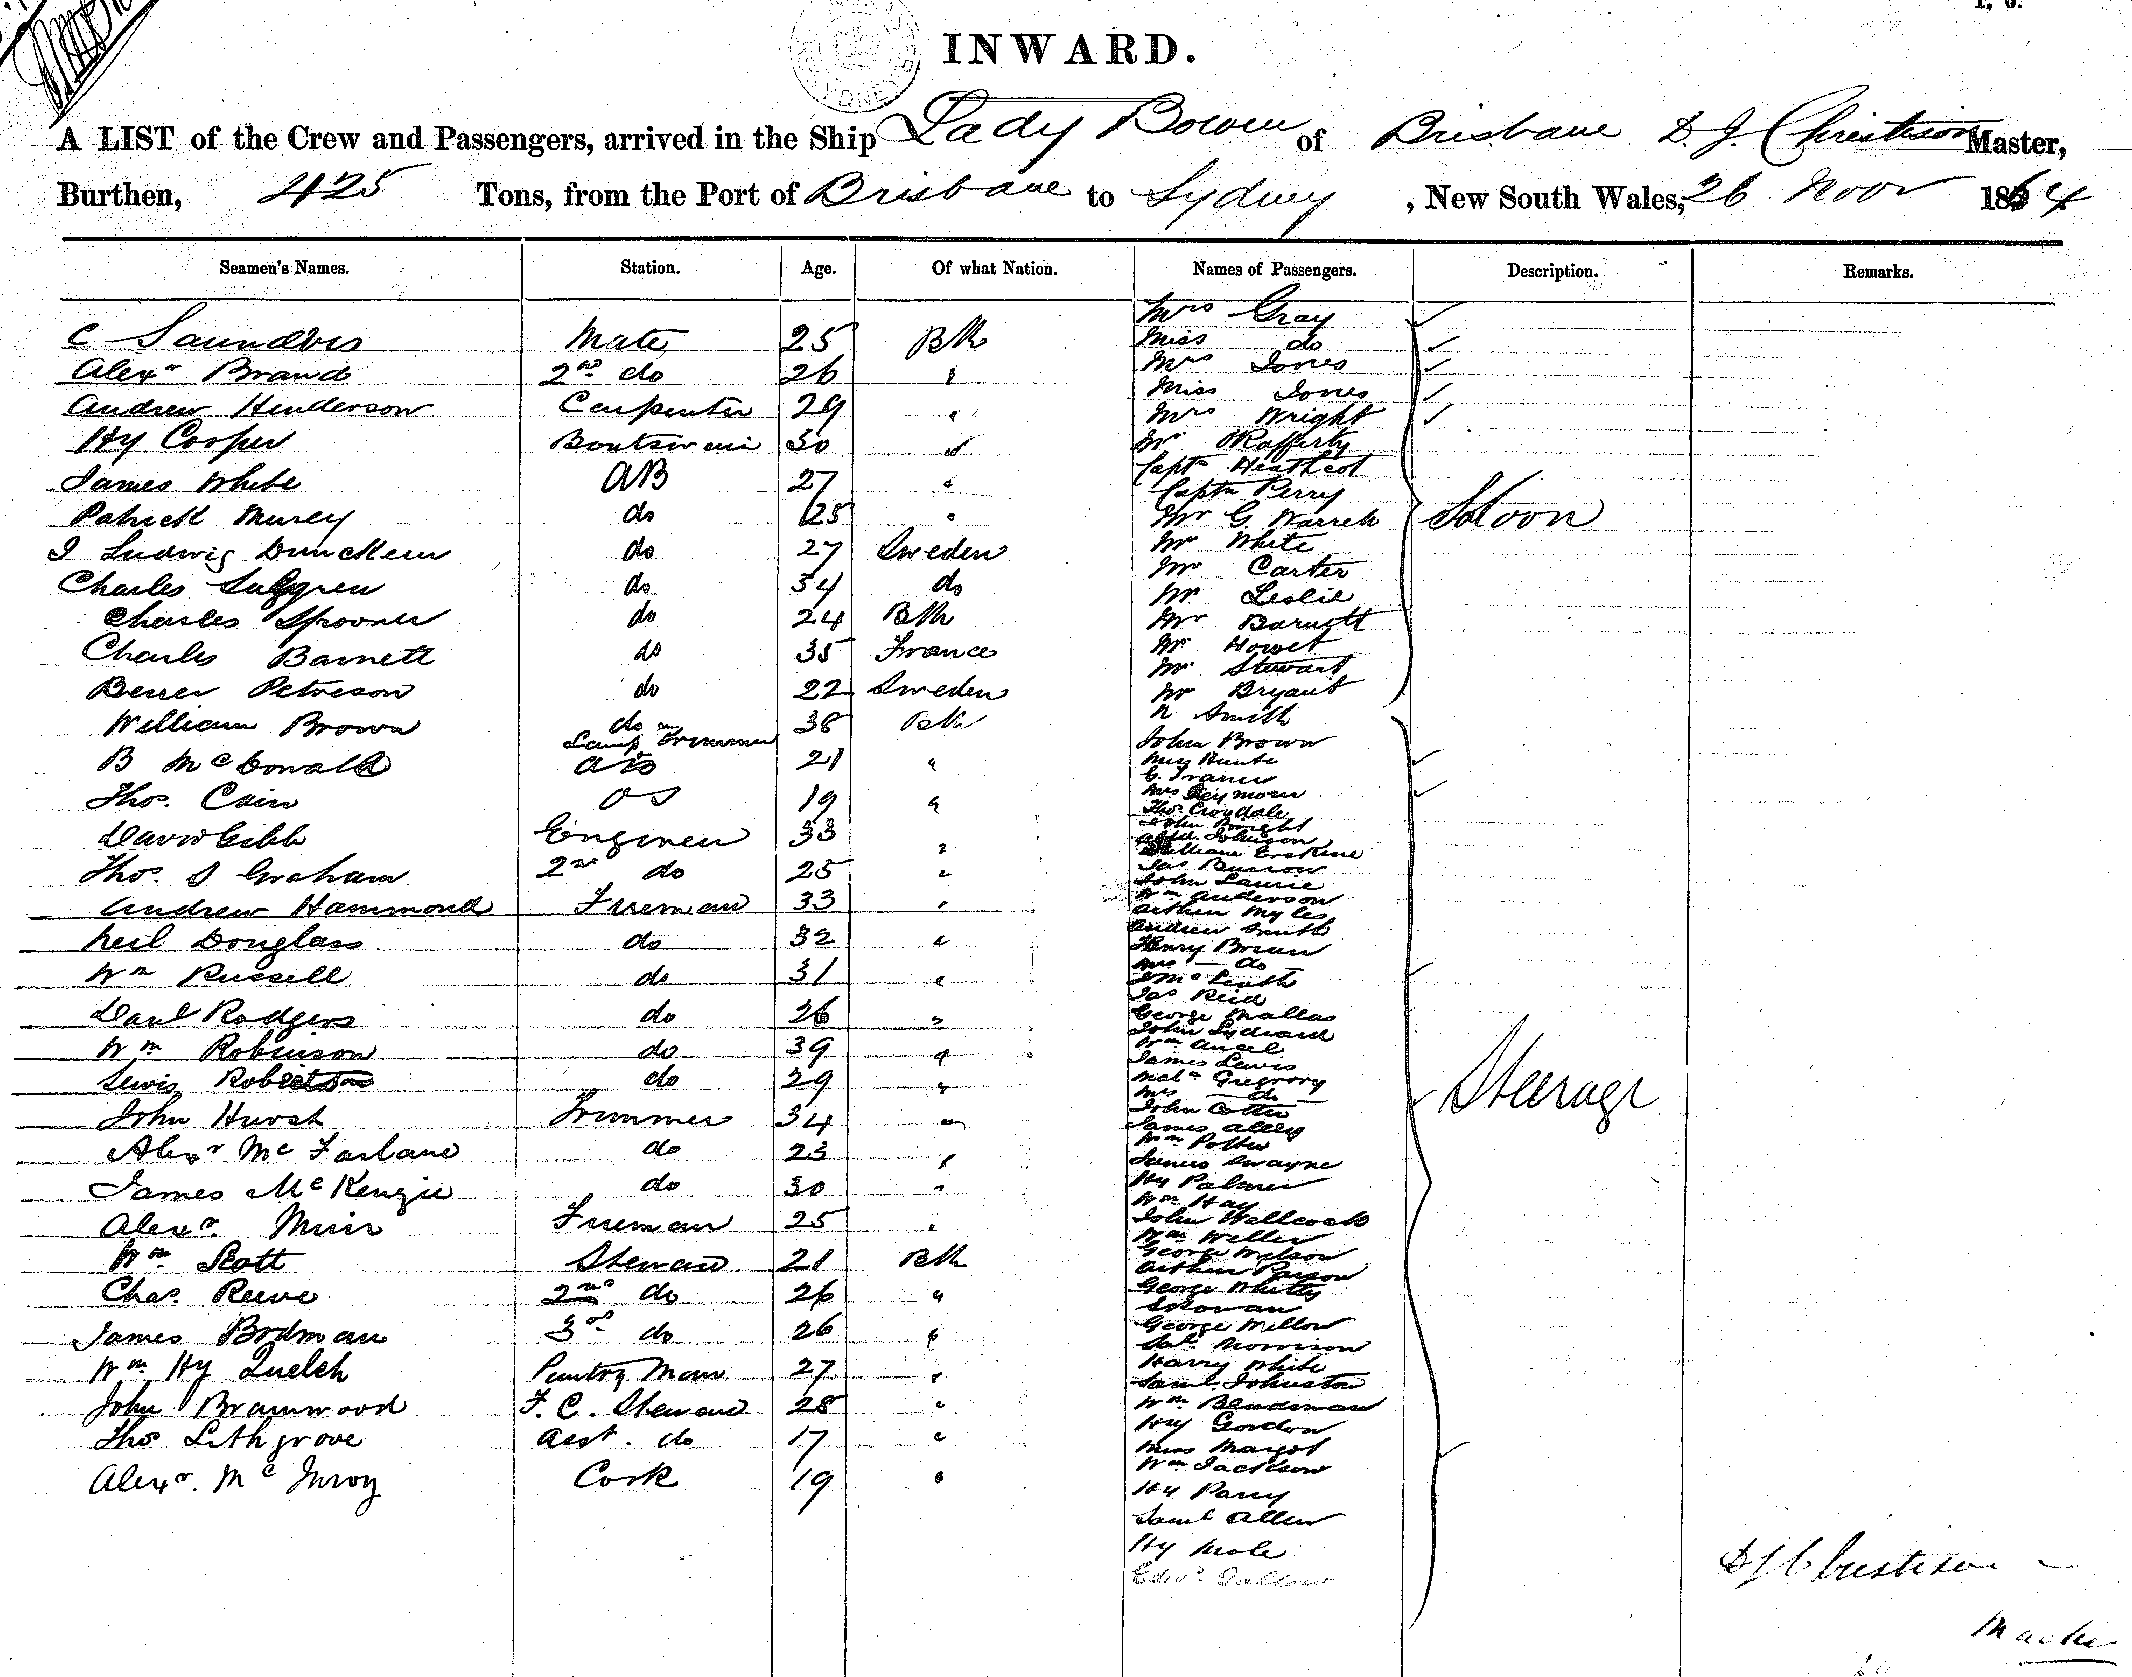 INWARD.
A LIST of the Crew and Passengers, arrived in the Ship Lady Bowen of Brisbane D. J. Christison Master,
Burthen, 425 Tons, from the Port of Brisbane to Sydney , New South Wales, 26 Novr 1864
Seamen's Names. Station. Age. Of what Nation. Names of Passengers. Description. Remarks.
C Saunders Mate 25 Bth
Alexr Brand 2nd do 26 "
Andrew Henderson Carpenter 29 "
Hy Cooper Boatswain 30 "
James White AB 27 "
Patrick Murey do 25 "
J Ludwig do 27 Sweden
Charles do 34 do
Charles Spooner do 24 Bth
Charles Barnett do 35 France
Petreson do 22 Sweden
William Brown do 38 Bth
Lamp Trimmer
B McDonald AB 21 "
Thos. Cain OS 19 "
David Gibb Engineer 33 "
Thos. S Graham 2nd do 25 "
Andrew Hammond Fireman 33 "
Neil Douglass do 32 "
Wm Russell do 31 "
Danl Rodgers do 26 "
Wm Robinson do 39 "
Lewis Robertson do 29 "
John Hurst Trimmer 34 "
Alexr McFarlane do 23 "
James McKenzie do 30 "
Alexr. Muir Fireman 25 "
Wm Scott Steward 21 Bth
Chas. Reeve 2nd do 26 "
James Bodman 3rd do 26 "
Wm Hy Quelch Pantry Man 27 "
John Bramwood F. C. Steward 28 "
Thos Lithgrove Asst. do 17 "
Alexr. McInroy Cook 19 "
Mrs Gray
Miss do
Mrs Jones
Miss Jones
Mrs Wright
Mr O'Rafferty
Captn Heathcot
Captn Perry
Mr G. Warren
Mr White
Mr Carter
Mr Leslie
Mr Barnett
Mr Howet
Mr Stewart
Mr Bryant
Saloon
N Smith
John Brown
Mrs
G.
Mrs Seymour
Thos. Croydale
John
Johnson
William Erskine
Jas
John Laurie
Wm Anderson
Arthur Myles
Andrew Smith
Henry Brown
Mrs do
Jas Reid
George Mallas
John
Wm Angel
James Lewis
Malm Gregrory
Mrs do
John Cotter
James Alley
Wm Potter
James Swayne
Hy Palmer
Wm Hay
John Wellcock
Wm Weller
George Watson
Arthur Parson
George Whitty
George Mellor
Morrison
Harry White
Saml. Johnston
Wm
Hy Gordon
Miss Margot
Wm Jackson
Hy Parry
Saml Allen
Hy Mole
Edwd
Steerage
D J Christison
Master